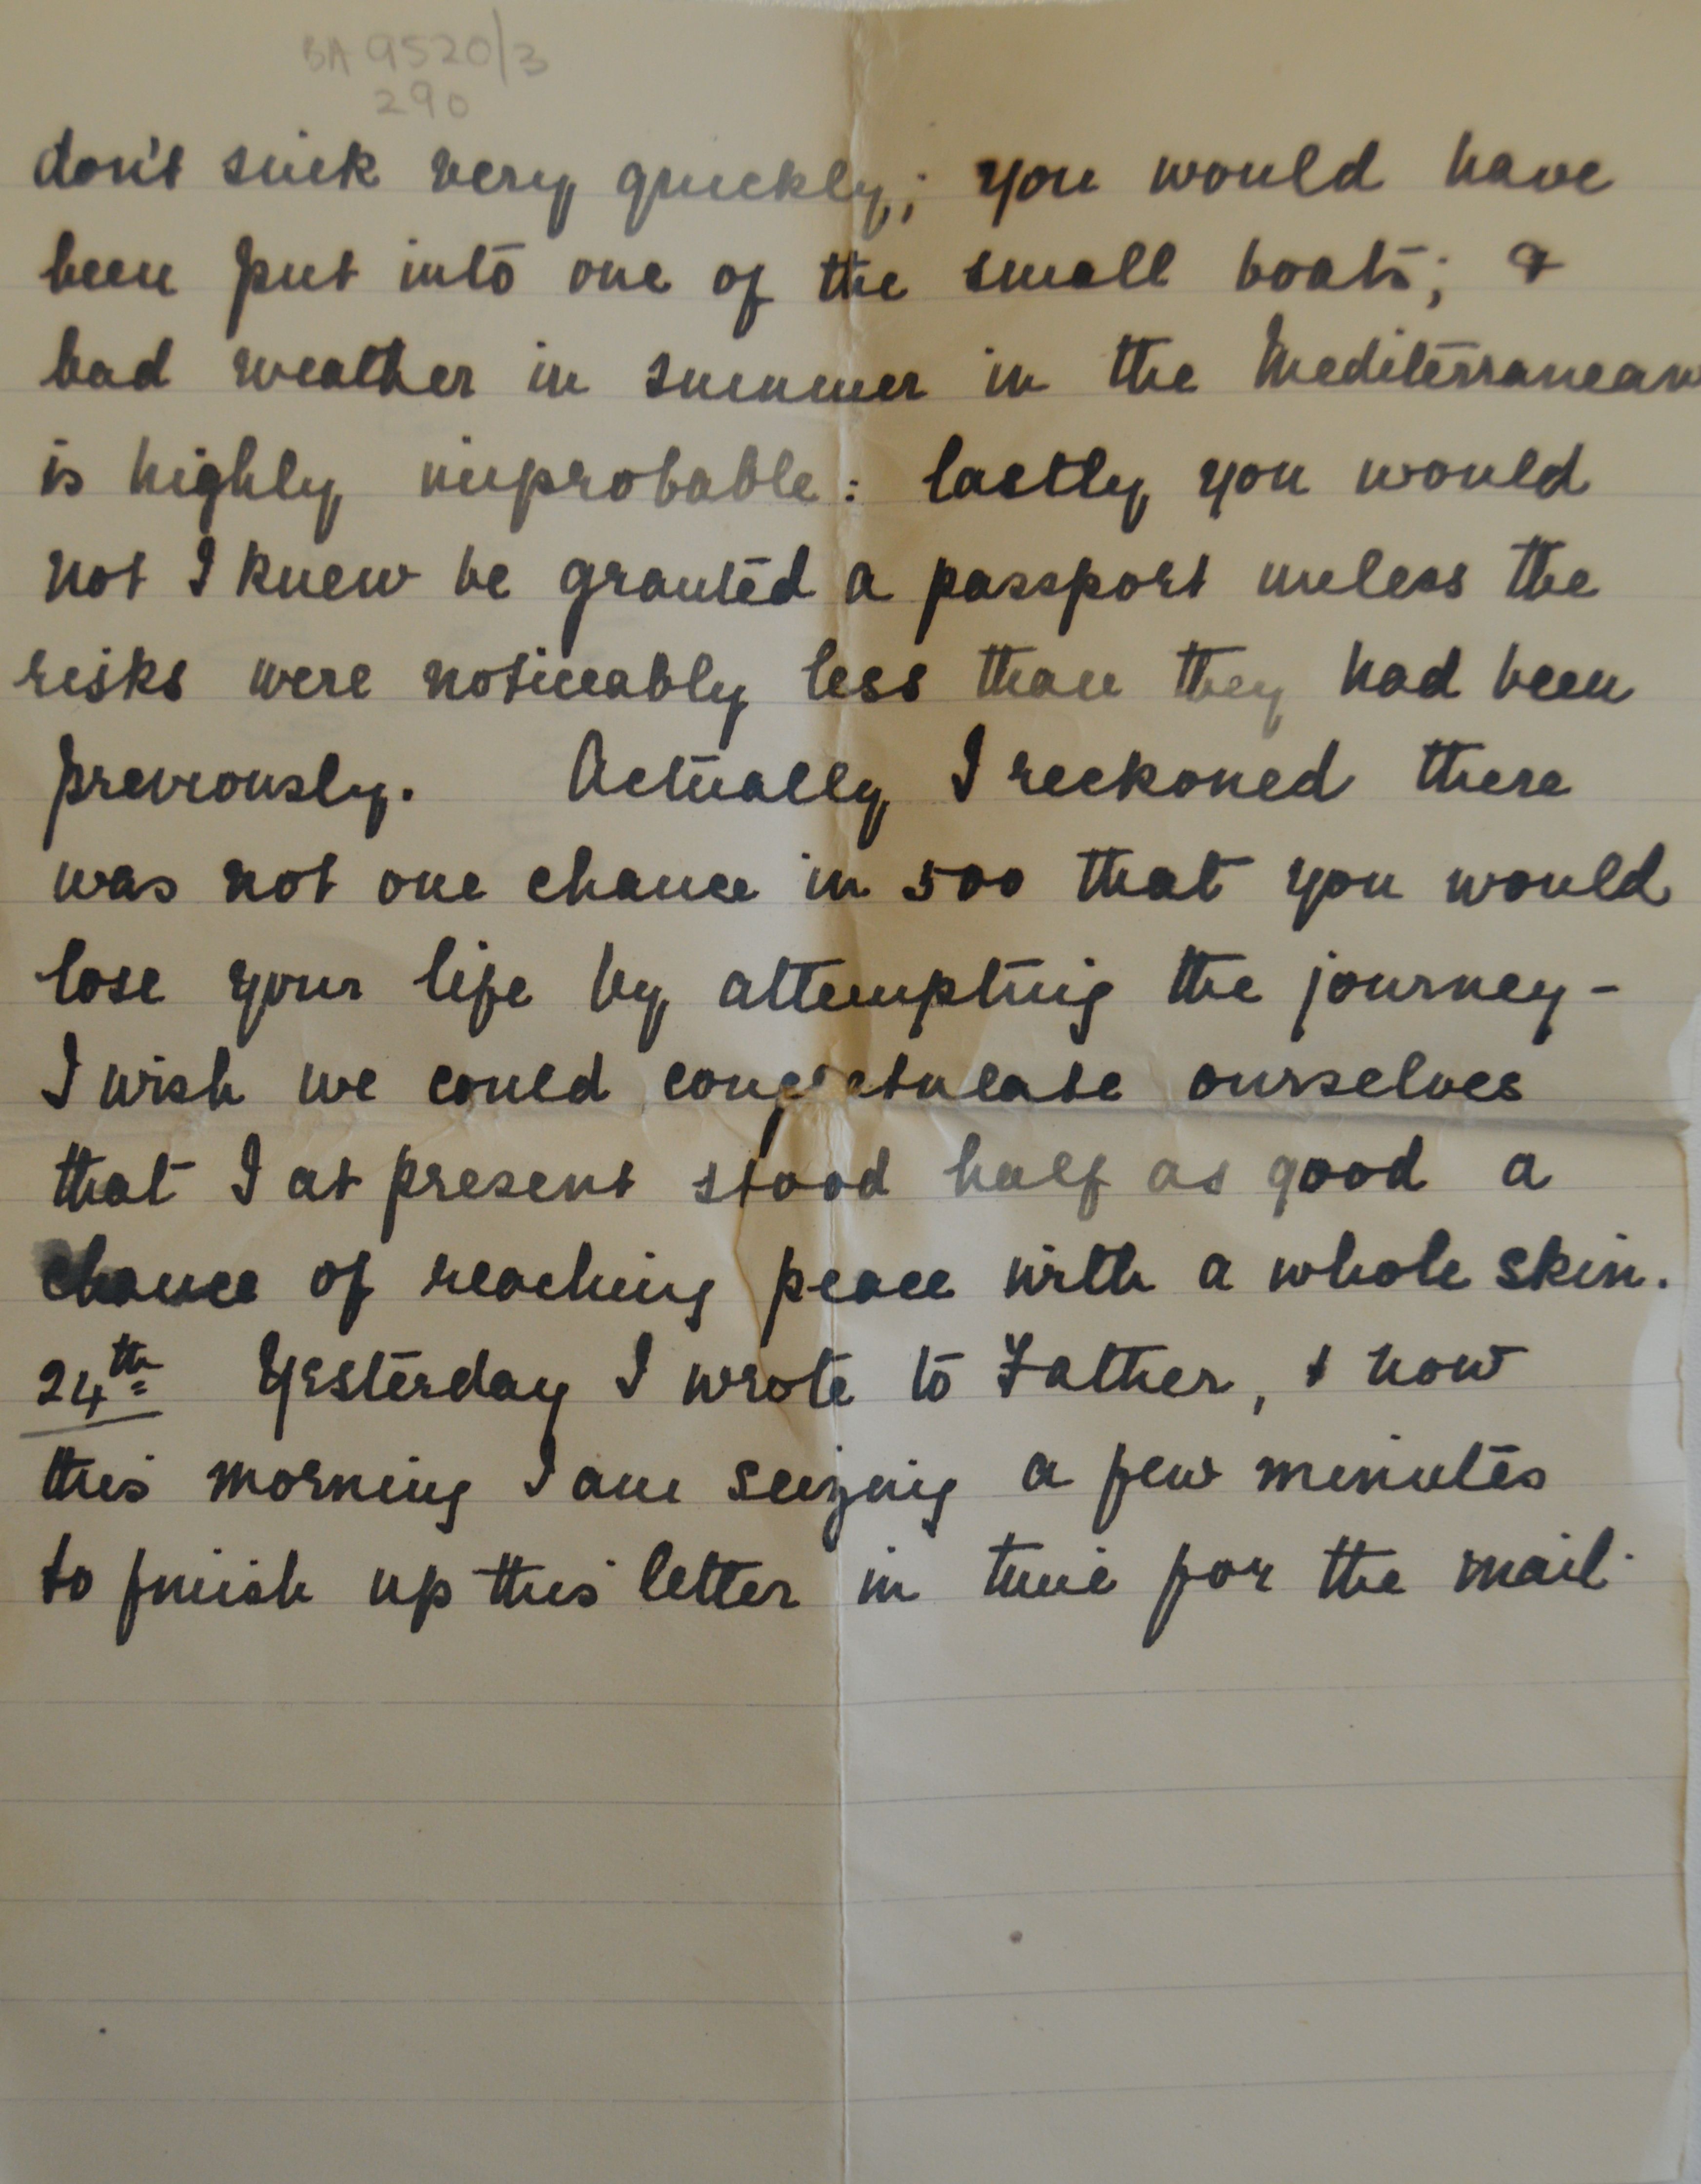 BA 9520/3
290
don't sink very quickly; you would have
been put into one of the small boats; &
bad weather in summer in the Mediterranean
is highly improbable: lastly you would
not I knew be granted a passport unless the
risks were noticeably less than they had been
previously. Actually I reckoned there
was not one chance in 500 that you would
lose your life by attempting the journey -
I wish we could congratulate ourselves
that I at present stood half as good a
chance of reaching peace with a whole skin.
24th Yesterday I wrote to Father, & now
this morning I am seizing a few minutes
to finish up this letter in time for the mail.